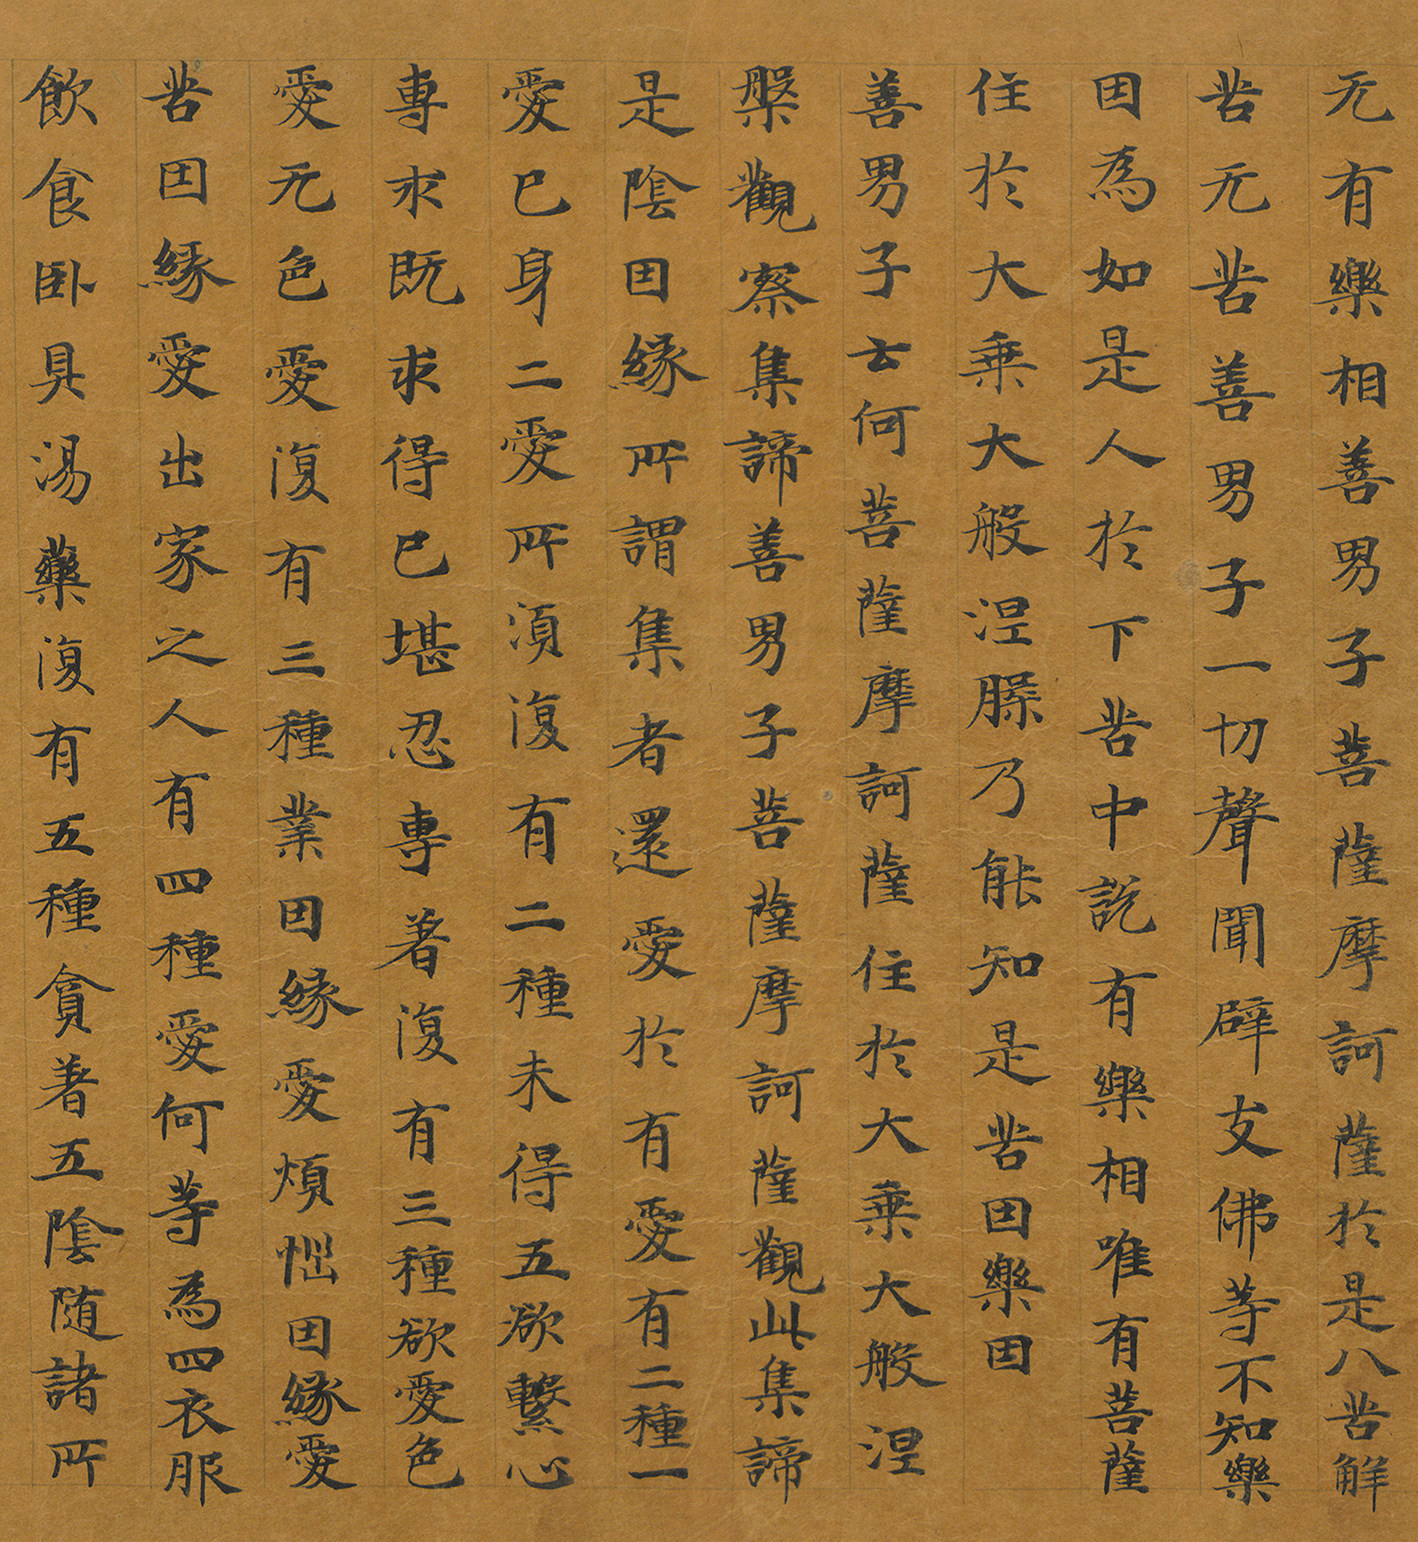 无有樂相善男子菩薩摩訶薩於是八苦解
苦无苦善男子一切聲聞辟支佛等不知樂
因為如是人於下苦中説有樂相唯有菩薩
住於大乗大般涅槃乃能知是苦因樂因
善男子云何菩薩摩訶薩住於大乗大般涅
槃觀察集諦善男子菩薩摩訶薩觀此集諦
是陰因縁所謂集者還愛於有愛有二種一
愛已身二愛所須復有二種未得五欲繫心
專求既求得已堪忍專著復有三種欲愛色
愛无色愛復有三種業因縁愛煩惱因縁愛
苦因縁愛出家之人有四種愛何等為四衣服
飲食卧具湯藥復有五種貪著五陰随諸所